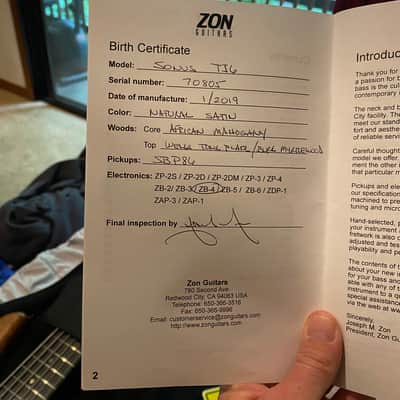 ZON
GUITARS
Birth Certificate
Model: SONUS
Serial number: 70805
Date of manufacture: 1/2019
Color: NATURAL SATIN
Woods: Core AFRICAN MAHOGANY
Top
Pickups: SBP86
Electronics: ZP-2S / ZP-2D / ZP-2DM / ZP-3 / ZP-4
ZB-2/ ZB-3/ ZB-4/ ZB-5 / ZB-6 / ZDP-1
ZAP-3 / ZAP-1
Final inspection by
Zon Guitars
780 Second Ave.
Redwood City, CA 94063 USA
Telephone: 650-366-3516
Fax: 650-366-9996
Email: customerservice@zonguitars.com
http://www.zonguitars.com
2
Introduc
Thank you for
a passion for b
bass is the cul
contemporary
The neck and b
City facility. The
meet our stand
fort and aesthe
of reliable servic
Careful thought
model we offer.
ment the other i
that particular m
Pickups and ele
our specification
machined to pre
tuning and micro
Hand-selected, p
your instrument
fretwork is also c
adjusted and tes
playability and pe
The contents of t
about your new i
for your bass and
able with any of t
instrument to a qu
special assistance
via the web at www
Sincerely,
Joseph M. Zon
President, Zon Gu